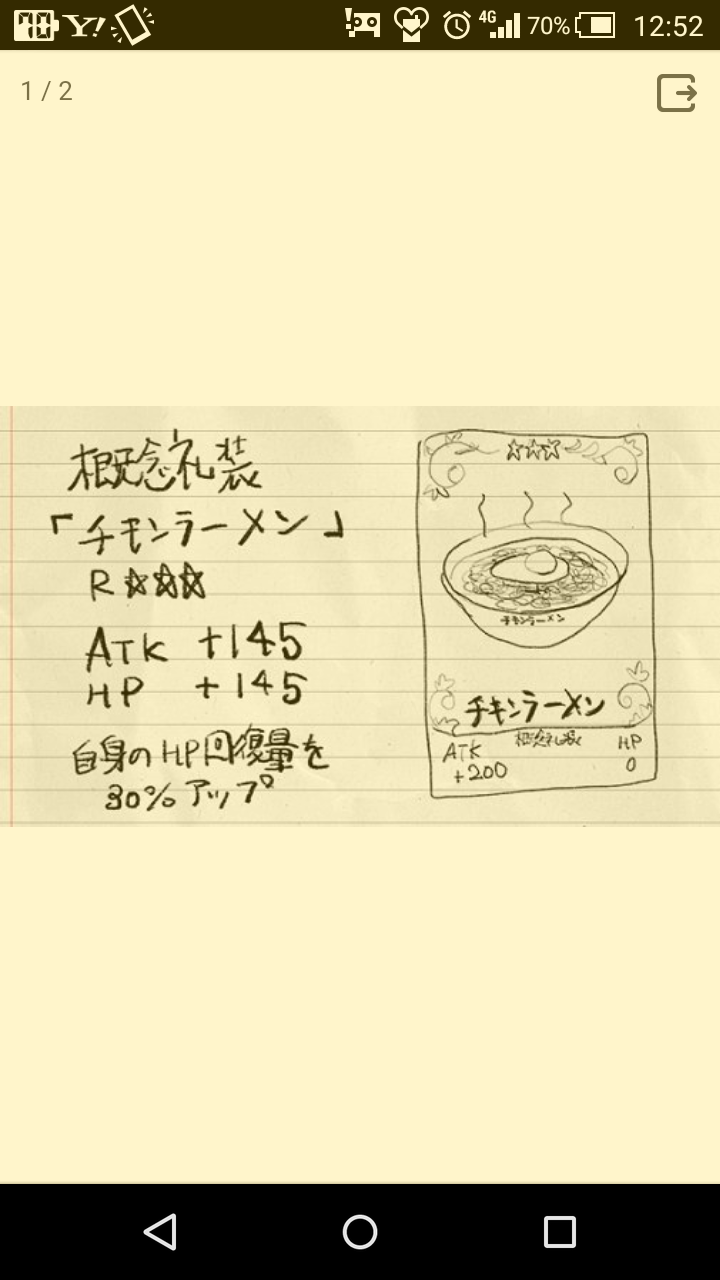 Y!
4G
70%
12:52
1 / 2
概念礼装
「チキンラーメン」
R ☆☆☆
ATK +145
HP +145
自身のHP回復量を
30% アップ
☆☆☆
チキンラーメン
チキンラーメン
概念礼装
ATK
+200
HP
0